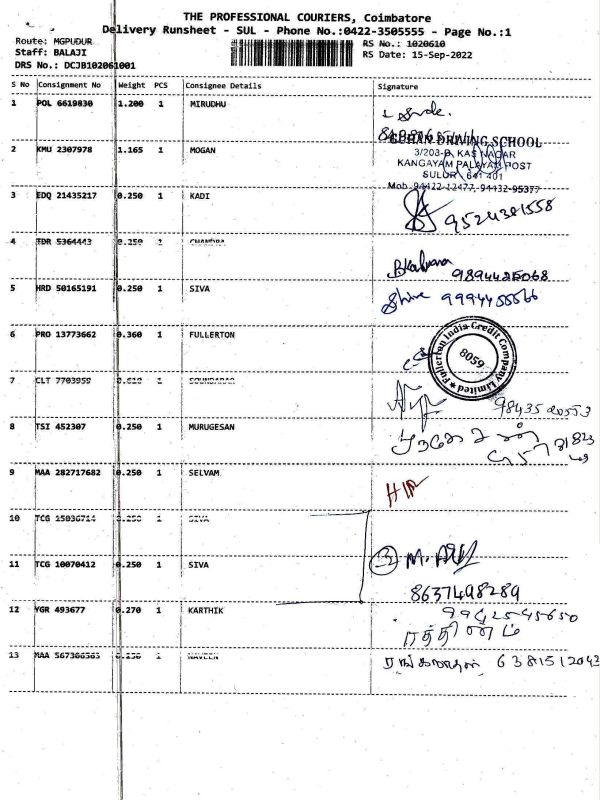 THE PROFESSIONAL COURIERS, Coimbatore
Delivery Runsheet - SUL - Phone No.:0422-3505555 - Page No.:1
Route: MGPUDUR
Staff: BALAJI
DRS No.: DCJB102061001
RS No.: 1020610
RS Date: 15-Sep-2022
S No Consignment No Weight PCS Consignee Details Signature
1 POL 6619830 1.200 1 MIRUDHU
GUHAN DRIVING SCHOOL
2 KMU 2307978 1.165 1 MOGAN
3/203-B, KAS NAGAR
KANGAYAM PALAYAM POST
SULUR 641 401
Mob 94422-12477, 94432-95377
3 EDQ 21435217 0.250 1 KADI
9524381558
4 TDR 5364443 0.250 1 CHANDRA
9894425068
5 HRD 50165191 0.250 1 SIVA
Shiva 9994455566
6 PRO 13773662 0.360 1 FULLERTON
Fullerton India Credit Company Limited
8059
7 CLT 7703959 SOUNDARAR
98435 20553
8 TSI 452307 0.250 1 MURUGESAN
9 MAA 282717682 0.250 1 SELVAM
10 TCG 15036714 0.250 1 SIVA
11 TCG 10070412 0.250 1 SIVA
8637498289
12 YGR 493677 0.270 1 KARTHIK
9942545650
ரத்தினம்
13 MAA 567366563 1 NAVEEN
6381512043